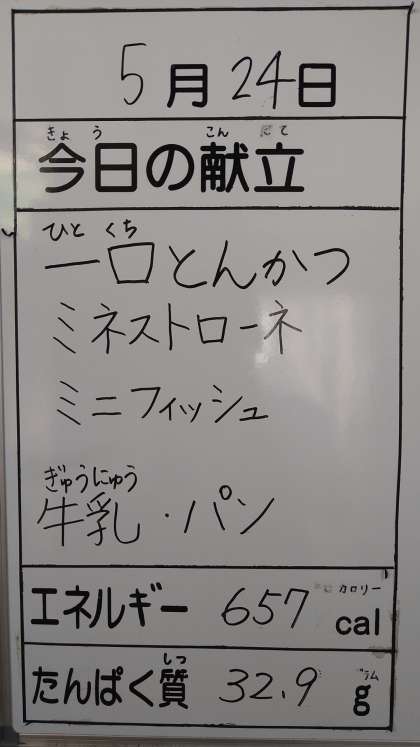 5月24日
きょう こんだて
今日の献立
ひとくち
一口とんかつ
ミネストローネ
ミニフィッシュ
ぎゅうにゅう
牛乳・パン
カロリー
エネルギー 657 cal
しつ グラム
たんぱく質 32.9 g